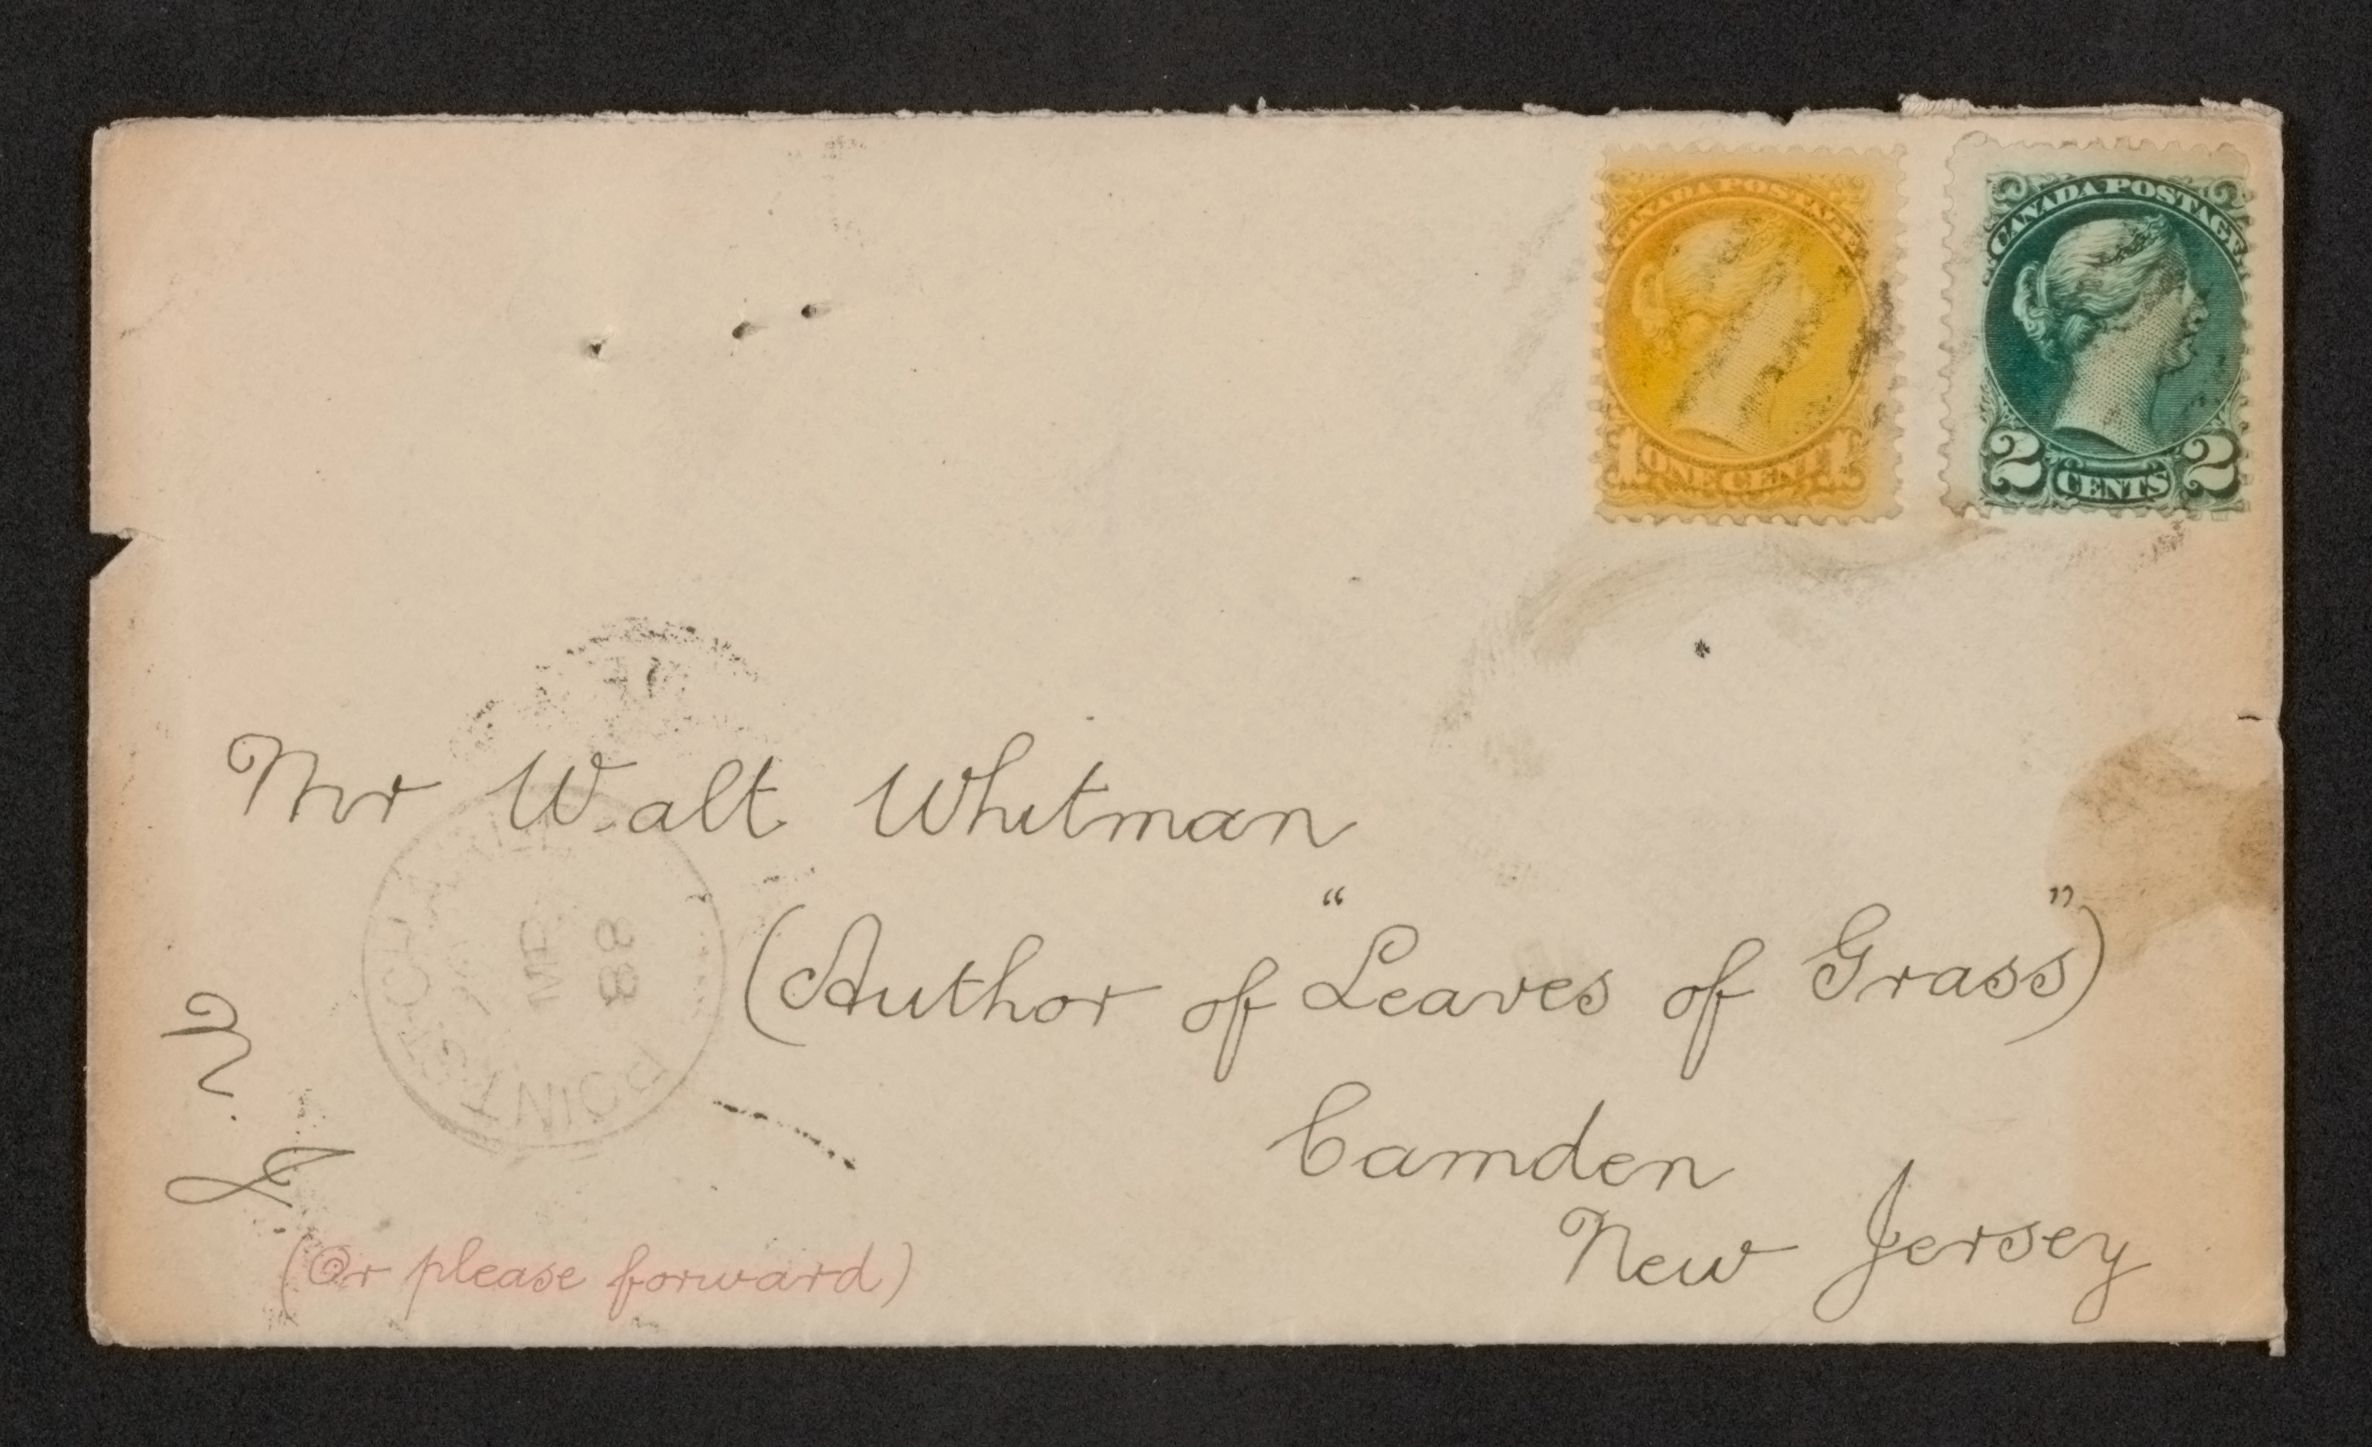 CANADA POSTAGE
1 ONE CENT 1
CANADA POSTAGE
2 CENTS 2
Mr Walt Whitman
(Author of “Leaves of Grass”)
Camden
New Jersey
(Or please forward)
POINT ST. CHARLES
MR
88